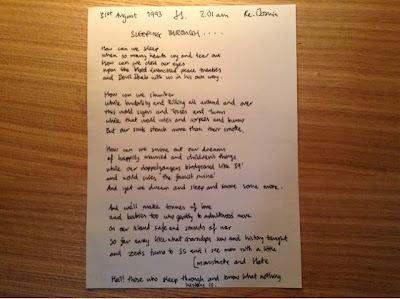 31st August 1993 2.01 am Re. Bosnia
SLEEPING THROUGH....
How can we sleep
when so many hearts cry and tear out
How can we close our eyes
upon the blood drenched peace treaties
and Devil deals with us in his own way.
How can we slumber
while brutality and killing all around and over
this world sighs and tosses and turns
while that world dies and corpses and burns
But our souls stench more than their smoke.
How can we snore out our dreams
of happily married and children's things
while our doppelgangers bludgeoned like 39'
and world cries 'the fascist swine'
And yet we dream and sleep and snore some more.
And we'll make tonnes of love
and babies too who gently to adulthood move
on our island safe and sounds of war
so far away like what grandpa saw and history taught
and seeds turns to SS and I see men with a little
[moustache and Hate
Hell! those who sleep through and know what nothing
history is.